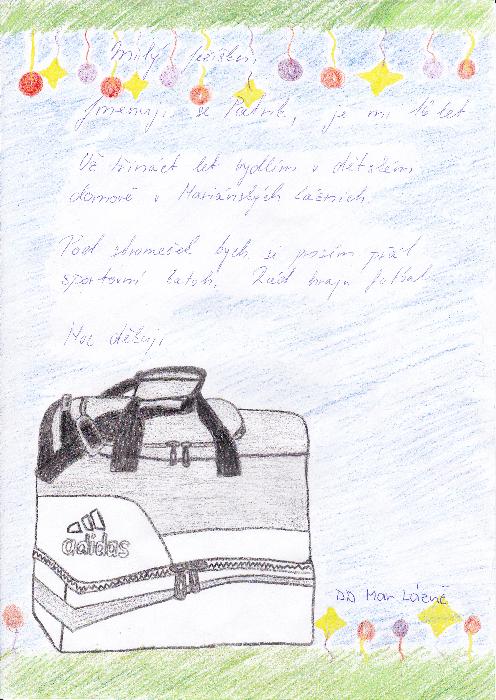 Milý Ježíšku
Jmenuji se Patrik, je mi 16 let
Už třináct let bydlím v dětském
domově v Mariánských Lázních.
Pod stromeček bych si prosím přál
sportovní batoh. Rád hraju fotbal
Moc děkuji
adidas
DD Mar Lázně